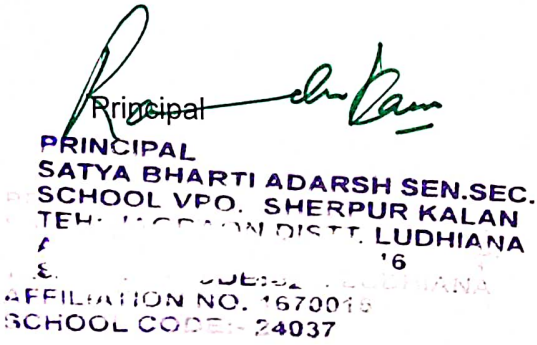 Principal
PRINCIPAL
SATYA BHARTI ADARSH SEN.SEC.
SCHOOL VPO. SHERPUR KALAN
TEH: JAGRAON DISTT. LUDHIANA
16
AFFILIATION NO. 1670016
SCHOOL CODE:- 24037